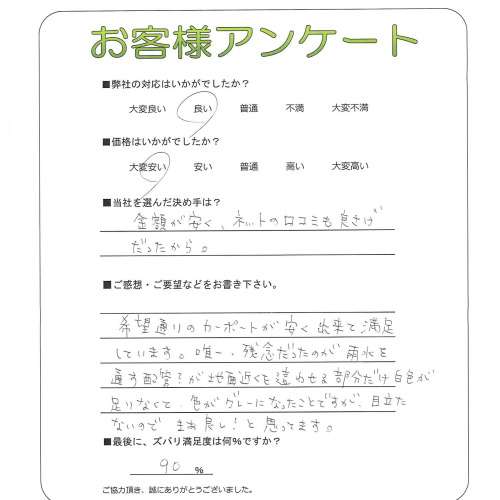 お客様アンケート
■弊社の対応はいかがでしたか？
大変良い 良い 普通 不満 大変不満
■価格はいかがでしたか？
大変安い 安い 普通 高い 大変高い
■当社を選んだ決め手は？
金額が安く、ネットの口コミも良さげ
だったから。
■ご感想・ご要望などをお書き下さい。
希望通りのカーポートが安く出来て満足
しています。唯一、残念だったのが雨水を
通す配管？が地面近くを這わせる部分だけ白色が
足りなくて、色がグレーになったことですが、目立た
ないので まぁ良し！と思ってます。
■最後に、ズバリ満足度は何％ですか？
90 ％
ご協力頂き、誠にありがとうございました。